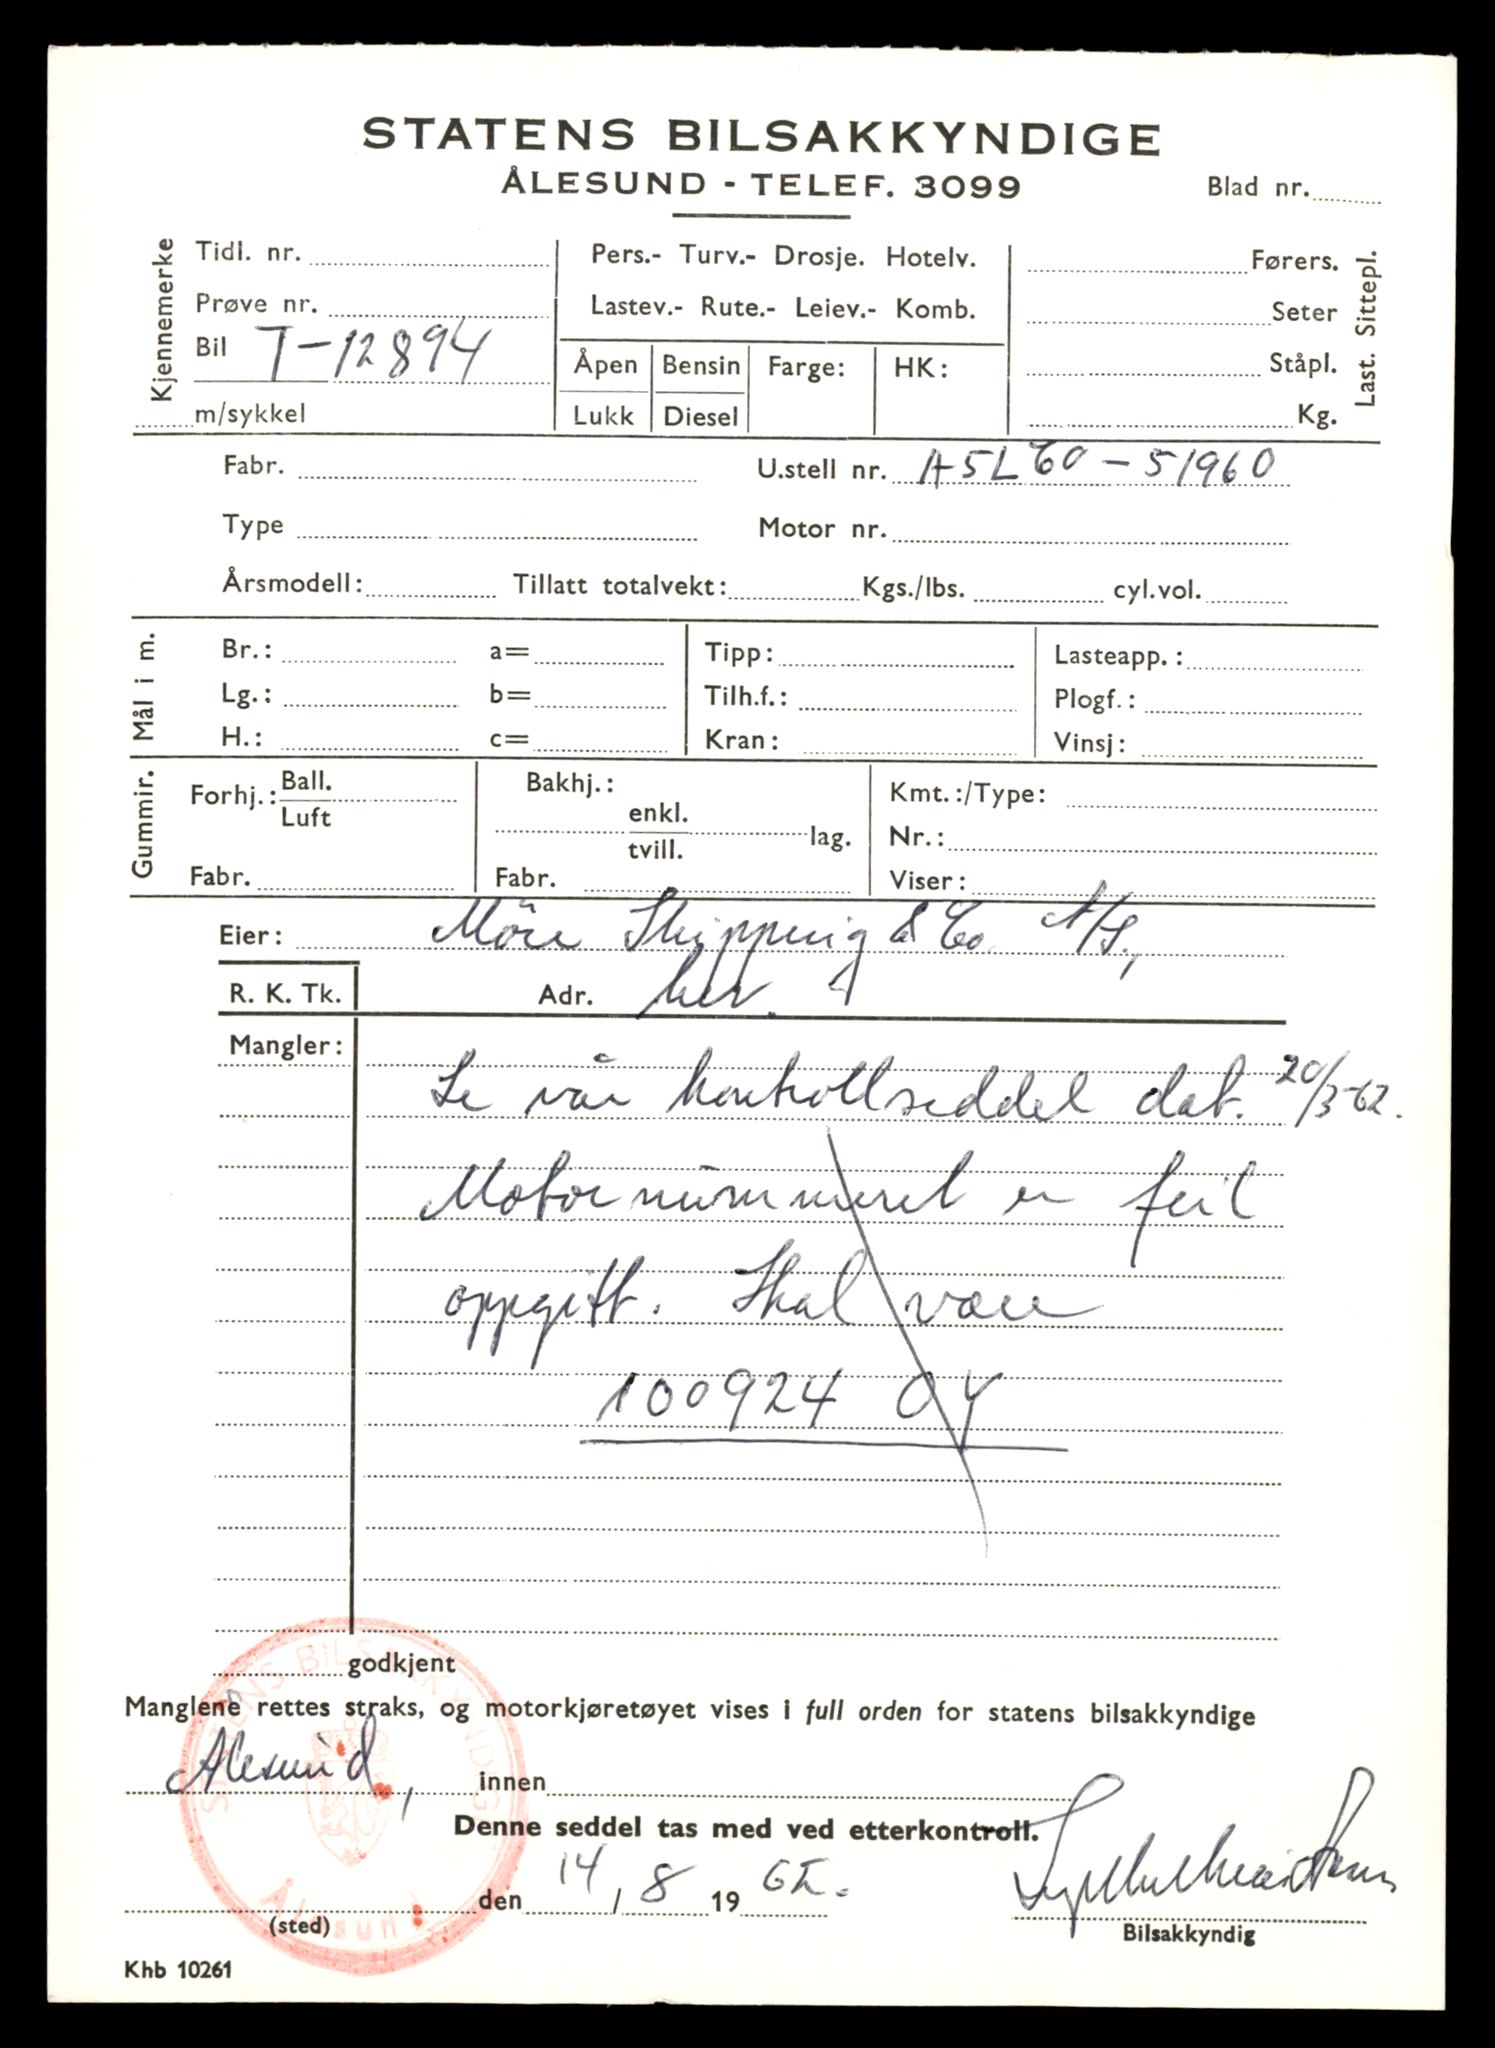 STATENS BILSAKKYNDIGE
ÅLESUND - TELEF. 3099
Blad nr.
Kjennemerke
Tidl. nr.
Prøve nr.
Bil T-12894
m/sykkel
Pers.- Turv.- Drosje. Hotelv.
Lastev.- Rute.- Leiev.- Komb.
Åpen Bensin Farge: HK:
Lukk Diesel
Førers.
Seter
Ståpl.
Kg.
Last. Sittepl.
Fabr. U.stell nr. A5L60-51960
Type Motor nr.
Årsmodell: Tillatt totalvekt: Kgs./lbs. cyl.vol.
Mål i m.
Br.: a= Tipp: Lasteapp.:
Lg.: b= Tilh.f.: Plogf.:
H.: c= Kran: Vinsj:
Gummir.
Forhj.: Ball. Luft
Fabr.
Bakhj.:
enkl.
tvill. lag.
Fabr.
Kmt.:/Type:
Nr.:
Viser:
Eier: Möre Shipping & Co. A/S,
R. K. Tk. Adr. her.
Mangler:
Se vår kontrollseddel dat. 20/3-62.
Motornummeret er feil
oppgitt. Skal være
100924 OY
godkjent
Manglene rettes straks, og motorkjøretøyet vises i full orden for statens bilsakkyndige
Ålesund, innen
Denne seddel tas med ved etterkontroll.
den 14/8 1962.
(sted)
Bilsakkyndig
Khb 10261
STATENS BILSAKKYNDIGE
Ålesund